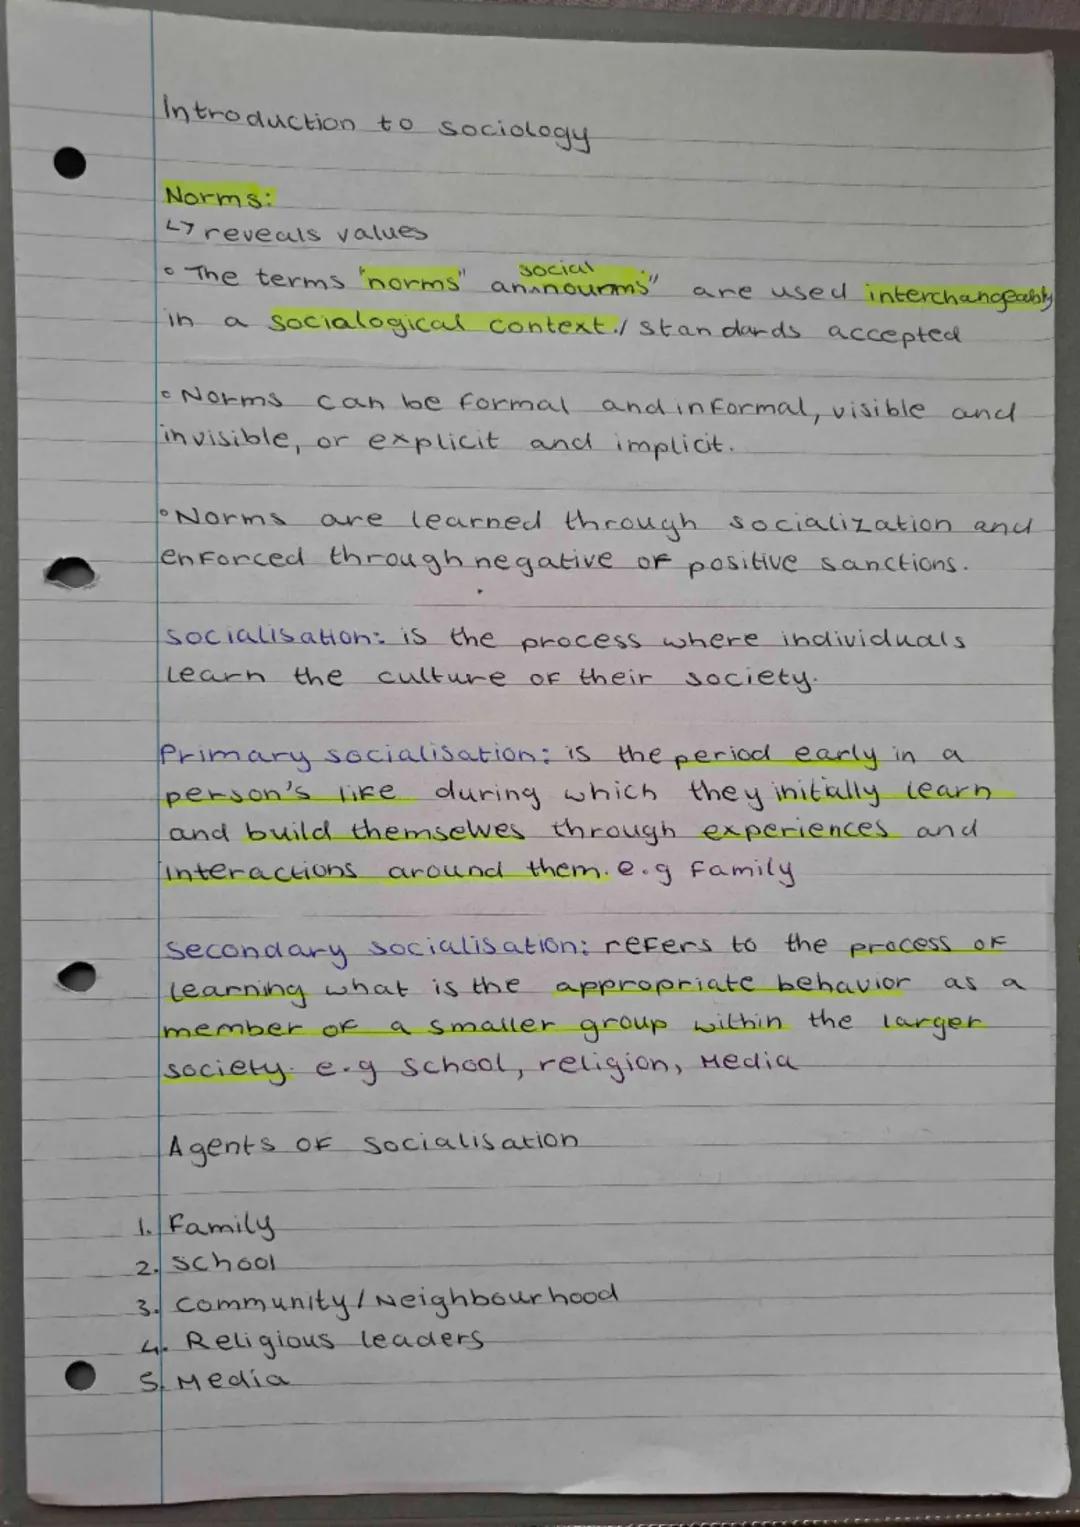 Introduction to sociology
Norms:
↳ reveals values
• The terms "norms" an social nourms" are used interchangeably
in a socialogical context./ standards accepted
• Norms can be formal and informal, visible and
invisible, or explicit and implicit.
• Norms are learned through socialization and
enforced through negative of positive sanctions.
socialisation: is the process where individuals
learn the culture of their society.
Primary socialisation: is the period early in a
person's life during which they initially learn
and build themselves through experiences and
interactions around them. e.g family
Secondary socialisation: refers to the process of
learning what is the appropriate behavior as a
member of a smaller group within the larger
society. e.g school, religion, Media
Agents of socialisation
1. Family
2. School
3. Community/Neighbourhood
4. Religious leaders
5. Media